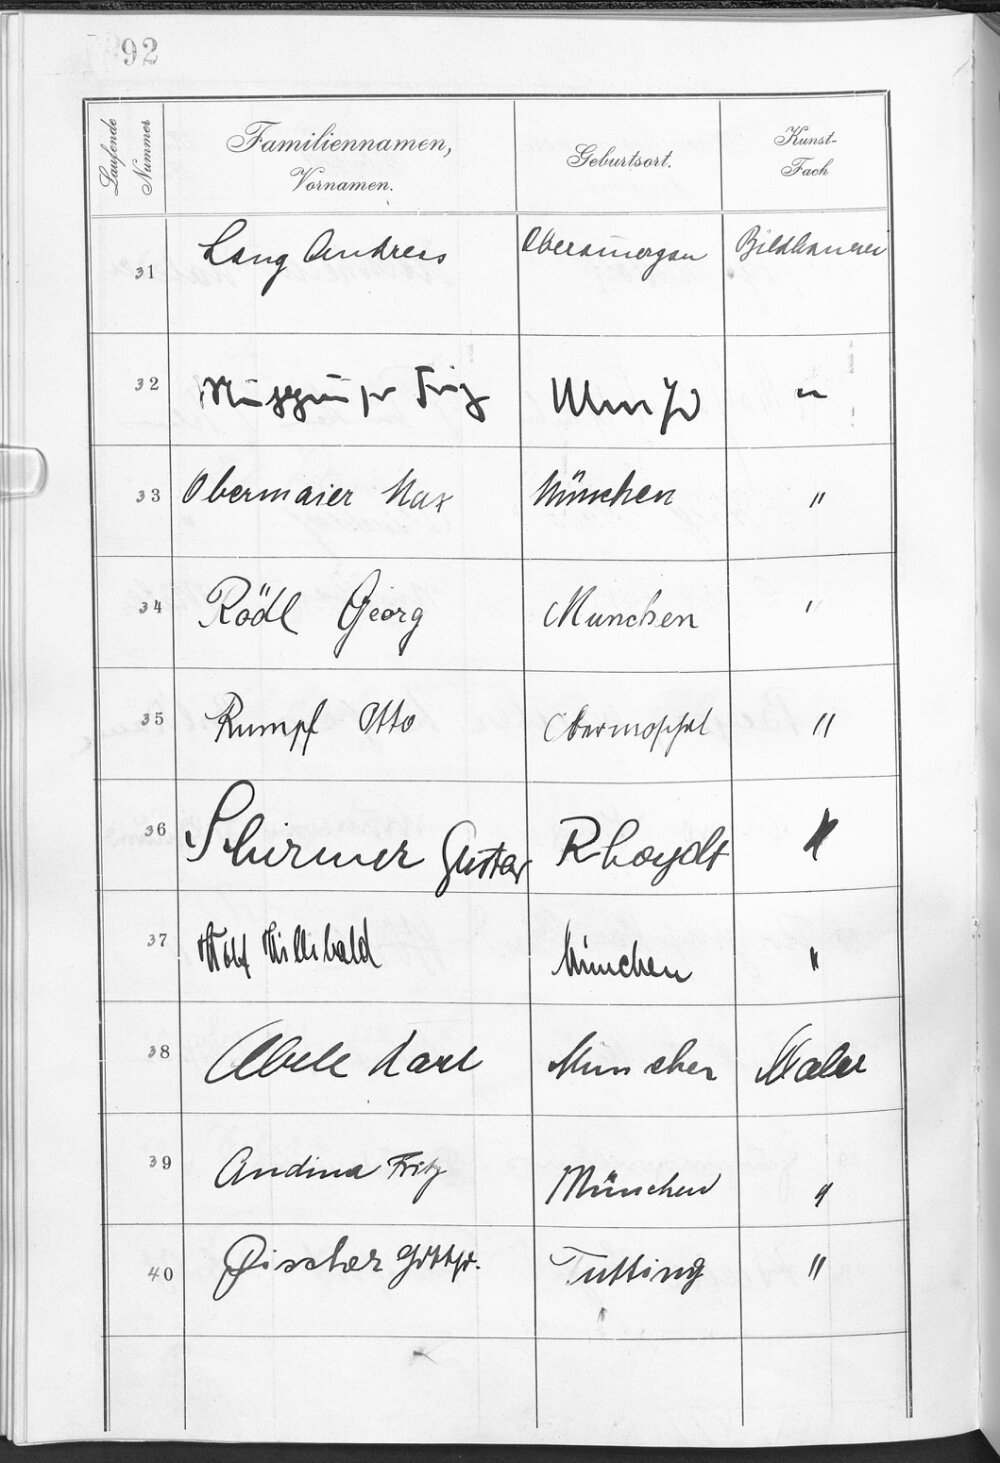 92
Laufende Nummer
Familiennamen, Vornamen.
Geburtsort.
Kunst-Fach
31 Lang Andreas Oberammergau Bildhauerei
32 Fritz Ulm "
33 Obermaier Max München "
34 Rödl Georg München "
35 Rumpf Otto Obermoschel "
36 Schirmer Gustav Rheydt "
37 Wolf Willibald München "
38 Abele Karl München Maler
39 Andina Fritz München "
40 Fischer Gottfr. Tutting "